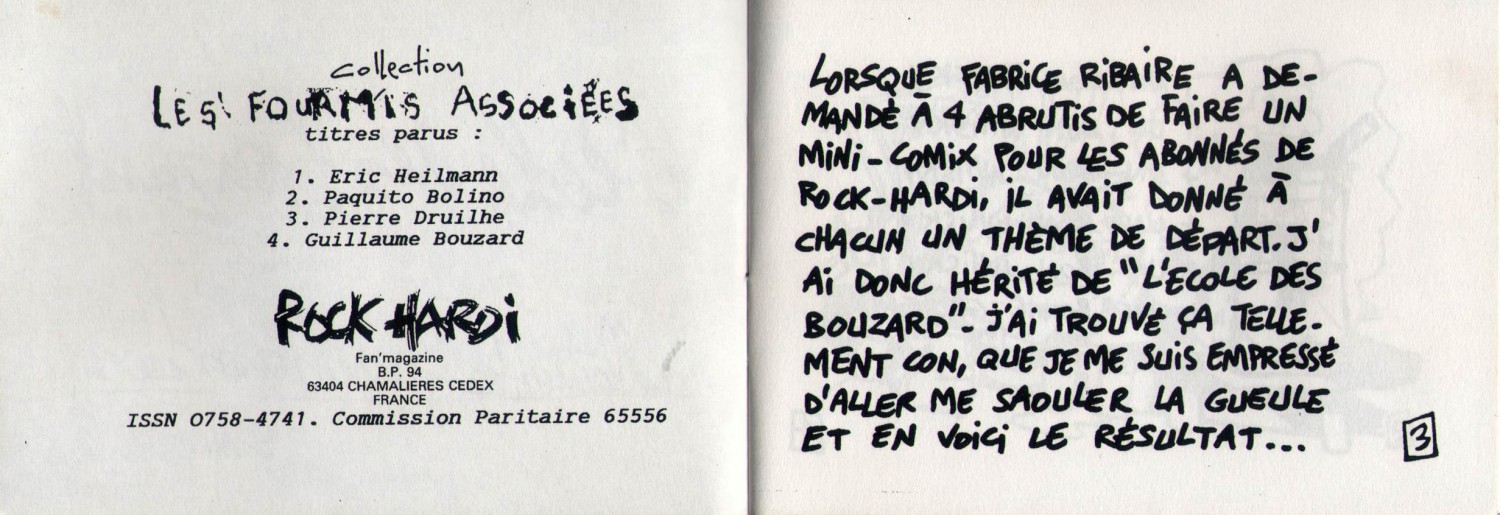 collection
LES FOURMIS ASSOCIÉES
titres parus :
1. Eric Heilmann
2. Paquito Bolino
3. Pierre Druilhe
4. Guillaume Bouzard
ROCK HARDI
Fan'magazine
B.P. 94
63404 CHAMALIERES CEDEX
FRANCE
ISSN 0758-4741. Commission Paritaire 65556
LORSQUE FABRICE RIBAIRE A DE-
MANDÉ À 4 ABRUTIS DE FAIRE UN
MINI-COMIX POUR LES ABONNÉS DE
ROCK-HARDI, IL AVAIT DONNÉ À
CHACUN UN THÈME DE DÉPART. J'
AI DONC HÉRITÉ DE "L'ECOLE DES
BOUZARD"- J'AI TROUVÉ ÇA TELLE-
MENT CON, QUE JE ME SUIS EMPRESSÉ
D'ALLER ME SAOULER LA GUEULE
ET EN VOICI LE RÉSULTAT...
3